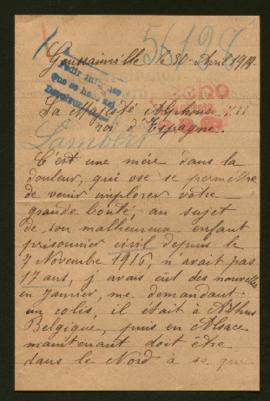 56128
Goussainville le 30 Avril 1917.
Pedir informes
que se haga
Sa Majesté Alphonse XIII
Roi d'Espagne.
Lambert
C'est une mère dans la
douleur, qui ose se permettre
de venir implorer votre
grande bonté, au sujet
de son malheureux enfant
prisonnier civil depuis le
7 Novembre 1916, n'avait pas
17 ans, j'avais eut des nouvelles
en Janvier, me demandant
un colis, il était à Athus
Belgique, puis en Alsace
maintenant doit être
dans le Nord à ce que